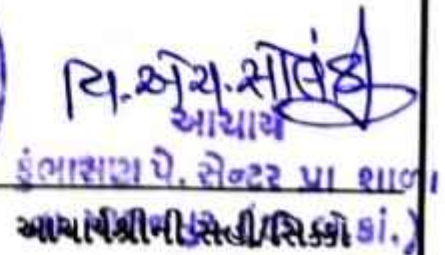 વિ.એચ.સોલંકી
આચાર્ય
કુંભાસણ પે. સેન્ટર પ્રા શાળા
આચાર્યશ્રીની સહી/સિક્કો કાં.)